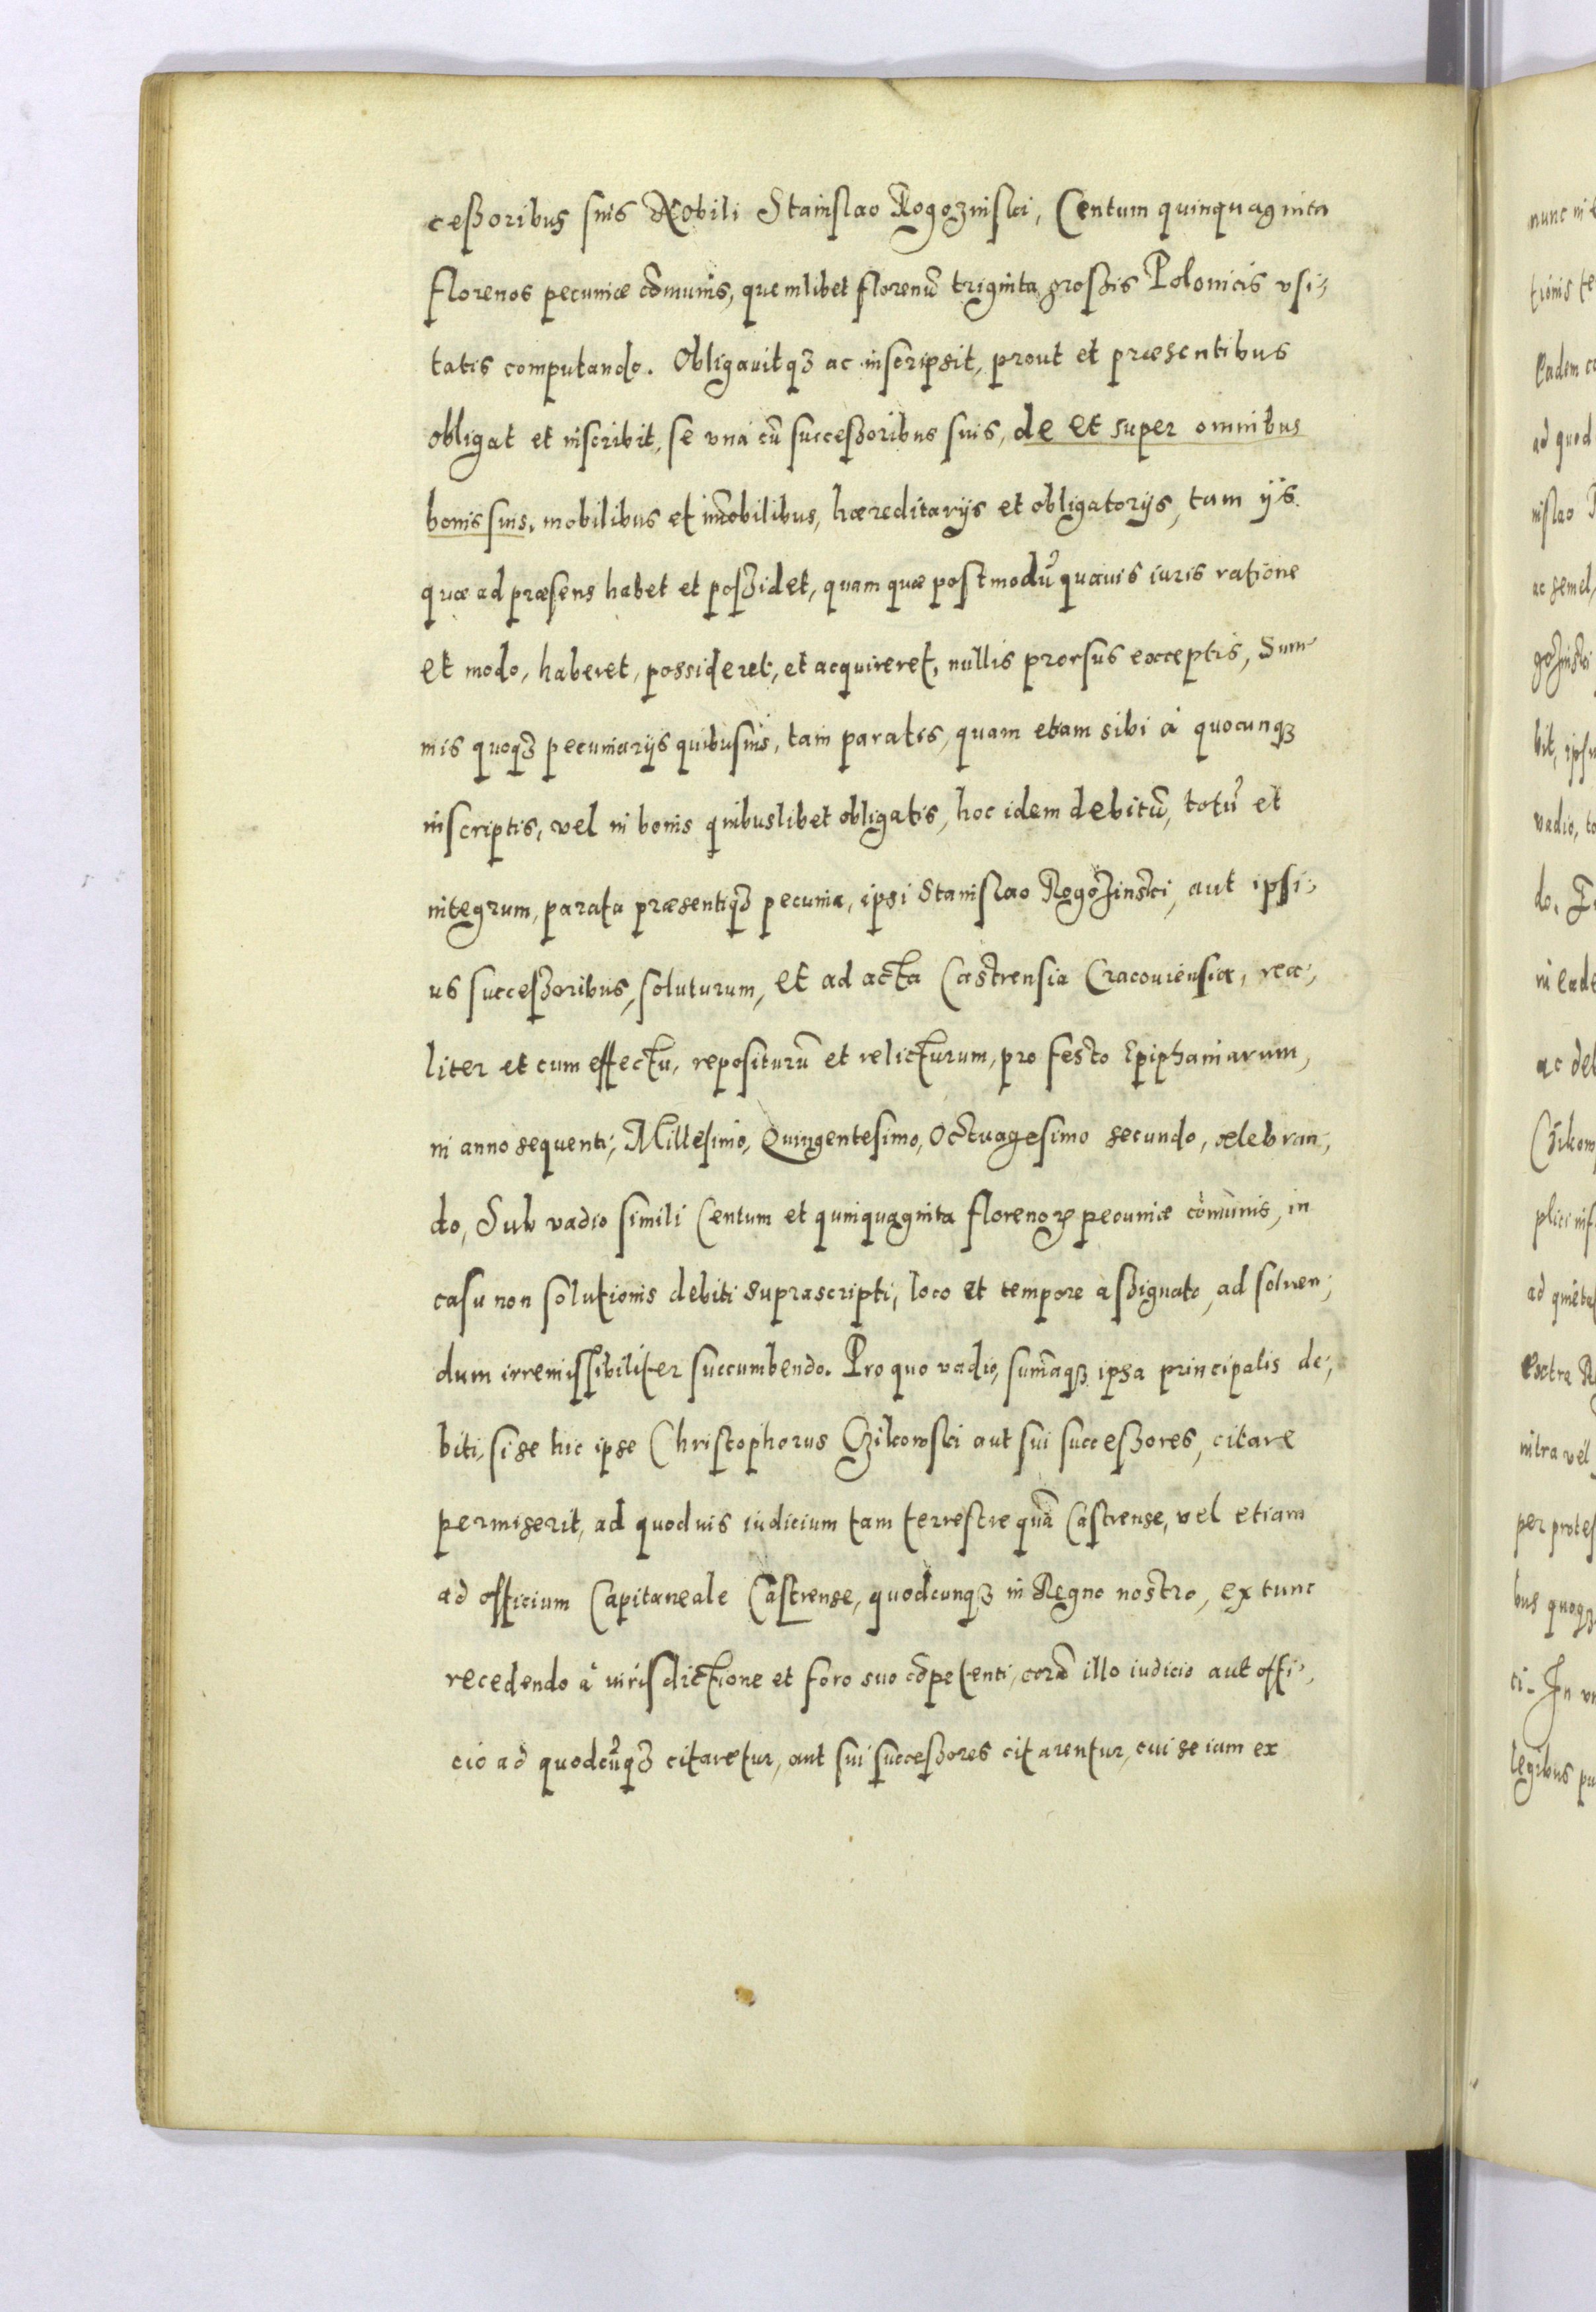 ceßoribus suis Nobili Stanislao Rogozniski, Centum quinquaginta
florenos pecuniæ cõmunis, quemlibet florenũ triginta großis Polonicis vsi;
tatis computando. Obligauitqꝫ ac inscripsit, prout et præsentibus
obligat et inscribit, se vná cũ succeßoribus suis, de et super omnibus
bonis suis, mobilibus et im̃obilibus, hæreditarijs et obligatorijs, tam ijs
quæ ad præsens habet et poßidet, quam quæ postmodũ quauis iuris ratione
et modo, haberet, possideret, et acquireret, nullis prorsus exceptis, Sum
mis quoqꝫ pecuniarijs quibusuis, tam paratis, quam etiam sibi á quocunqꝫ
inscriptis, vel in bonis quibuslibet obligatis, hoc idem debitũ, totũ et
integrum, parata præsentiqꝫ pecunia, ipsi Stanislao Rogozinski, aut ipsi;
us succeßoribus, soluturum, et ad acta Castrensia Cracouiensia, rea;
liter et cum effectu, repositurũ et relicturum, pro festo Epiphaniarum,
in anno sequenti, Millesimo, Quingentesimo, Octuagesimo secundo, celebran;
do, Sub vadio simili Centum et quinquaginta florenoꝝ pecuniæ cõmunis, in
casu non solutionis debiti suprascripti, loco et tempore aßignato, ad soluen;
dum irremissibiliter succumbendo. Pro quo vadio, sum̃aqꝫ ipsa principalis de;
biti, si se hic ipse Christophorus Czikowski aut sui succeßores, citare
permiserit, ad quoduis iudicium tam terrestre quã Castrense, vel etiam
ad officium Capitaneale Castrense, quodcunqꝫ in Regno nostro, ex tunc
recedendo á iurisdictione et foro suo cõpetenti, corã illo iudicio aut offi;
cio ad quodcũqꝫ citaretur, aut sui succeßores citarentur, cui se iam ex